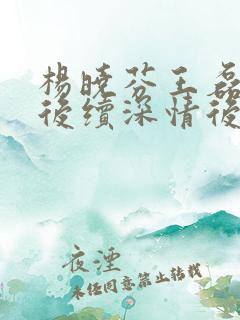 楊曉芬王磊
後續深情後
夜湮
未经同意禁止转载